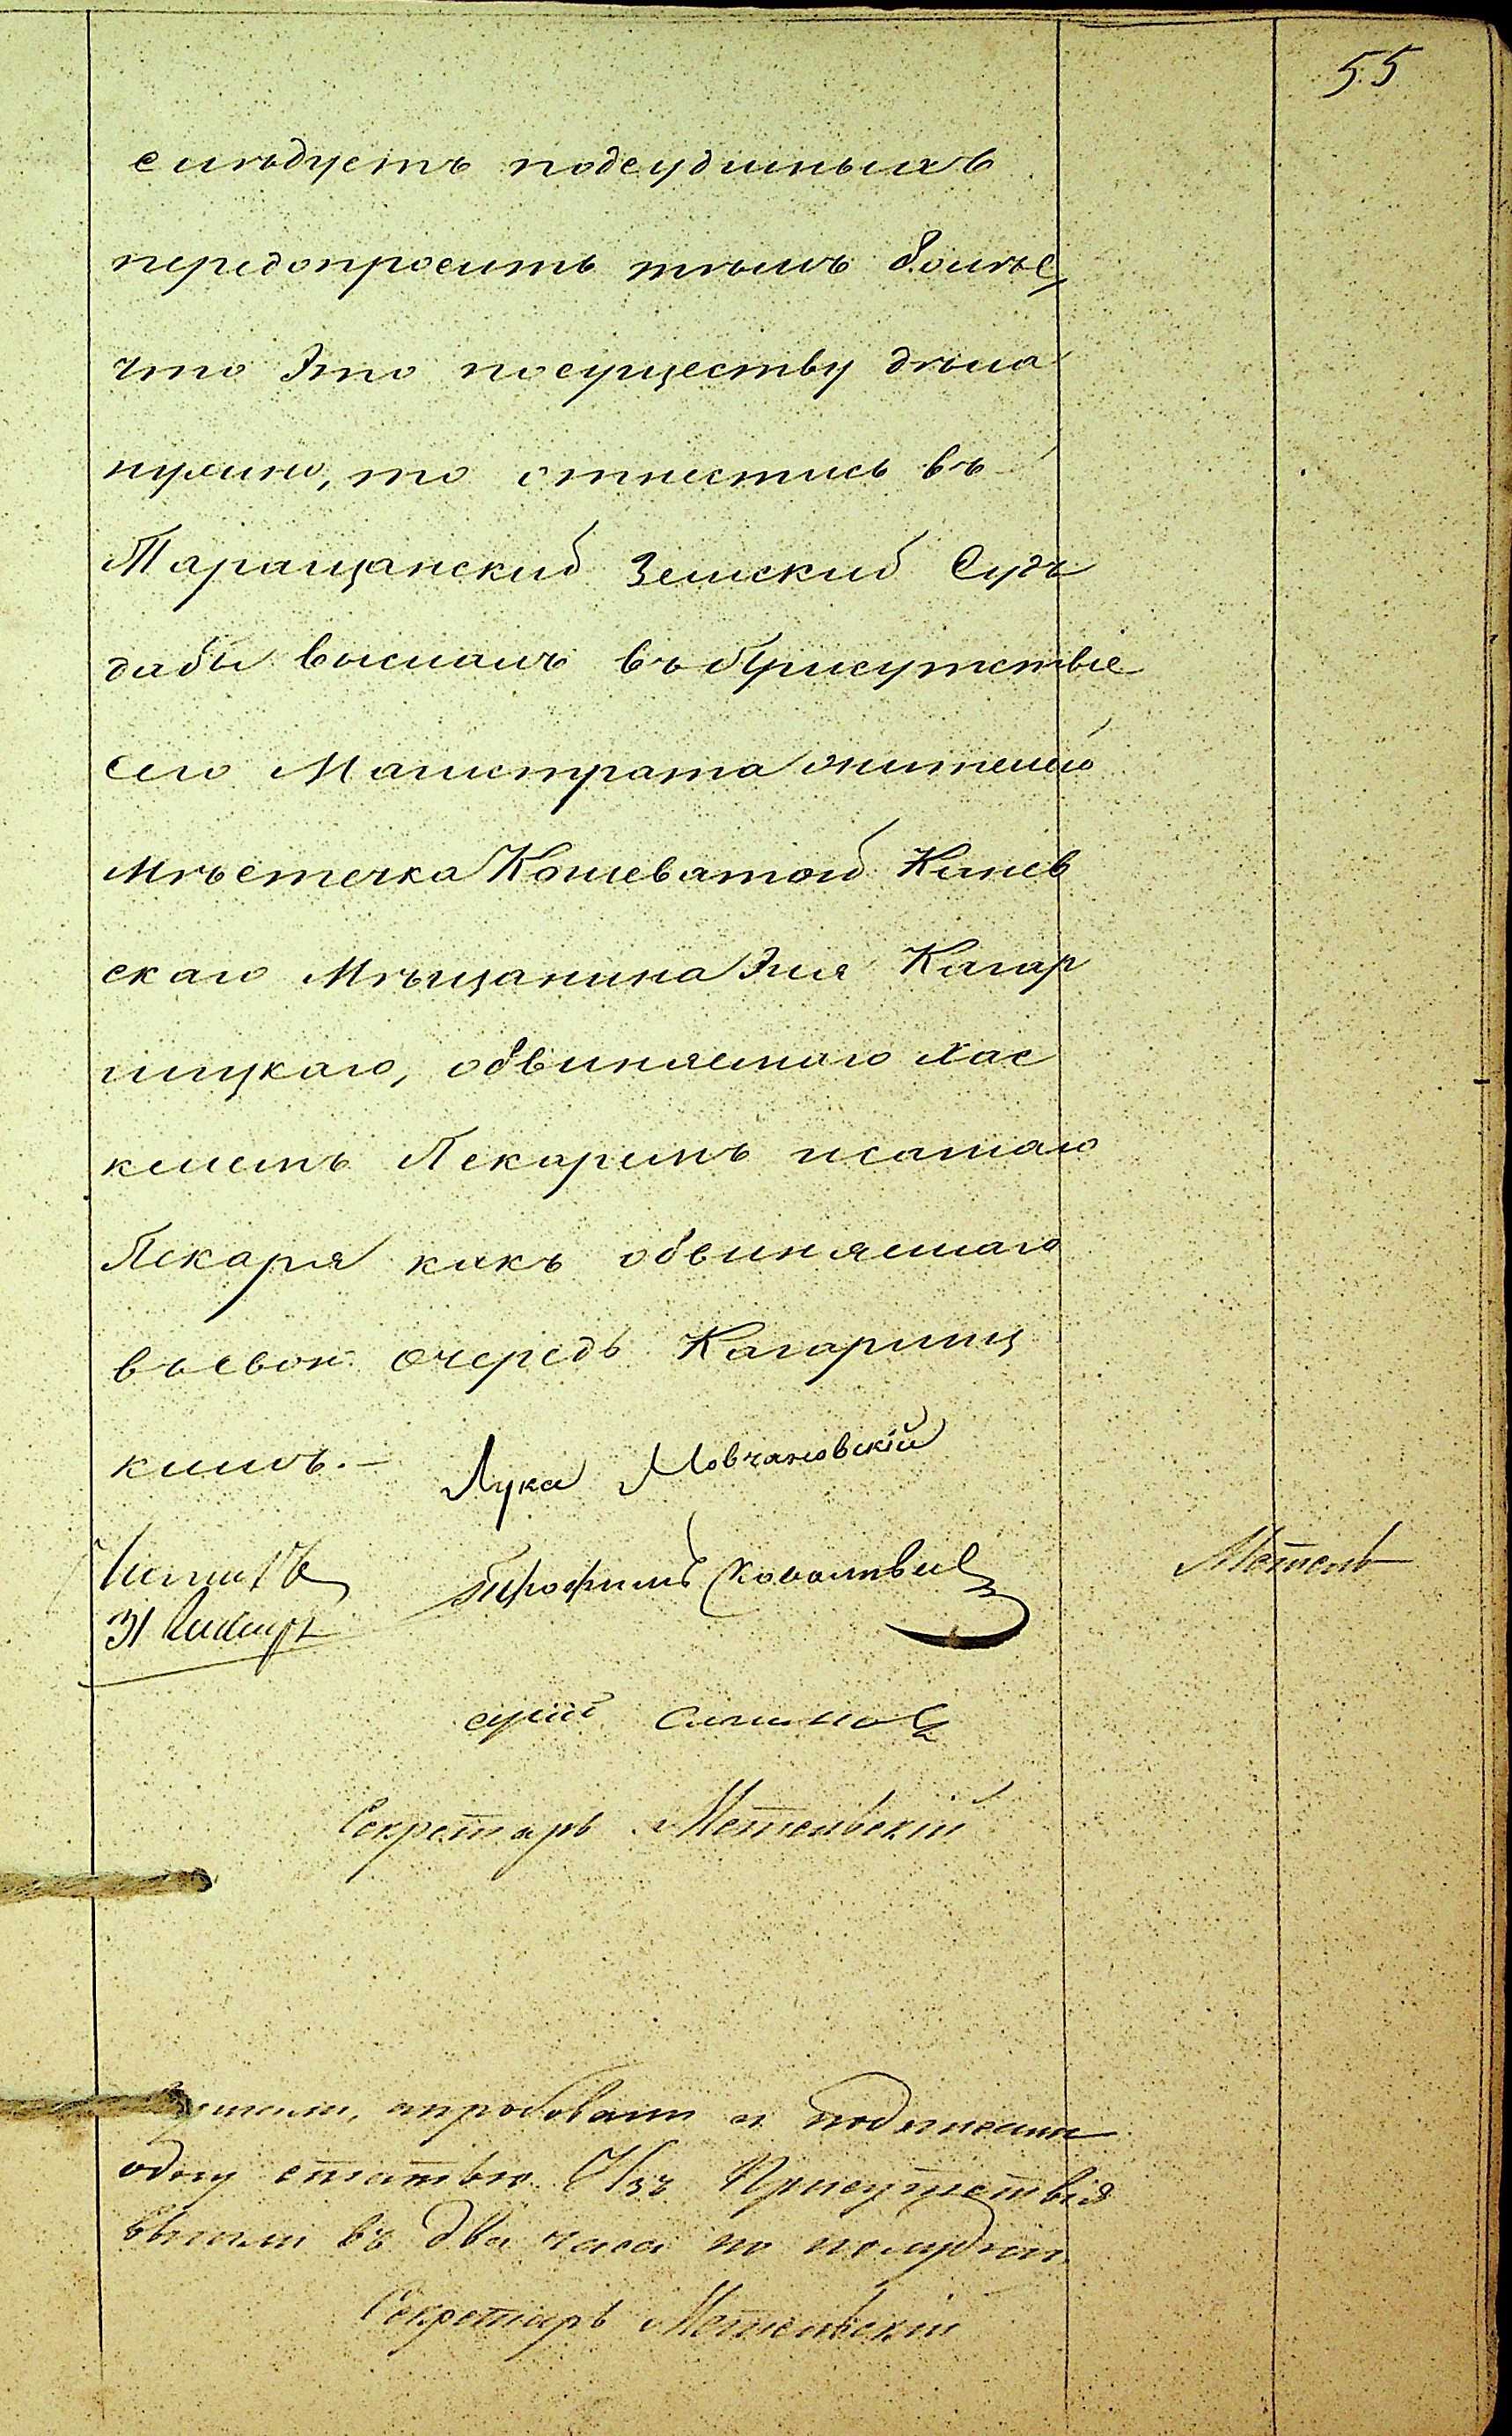 55
слѣдуетъ подсудимыхъ
передопросить тѣмъ болѣе,
что это посуществу дѣла
нужно, то отнестись въ
Таращанскій Земскій Судъ
дабы выслалъ въ Присутствіе
сего Магистрата жителей
Мѣстечка Кошеватой Канев
скаго Мѣщанина Эля Кагар
лицкаго, обвиняемаго Хас
келемъ Пекаремъ и самаго
Пекаря какъ обвиняемаго
въ свою очередь Кагарлиц
кимъ.—
Лука Мовчановскій
Трофимъ
Метель
31
Секретарь Метельскій
апробовали и подписали
одну статью. Изъ Присутствія
вышли въ два часа по полудни.
Секретарь Метельскій